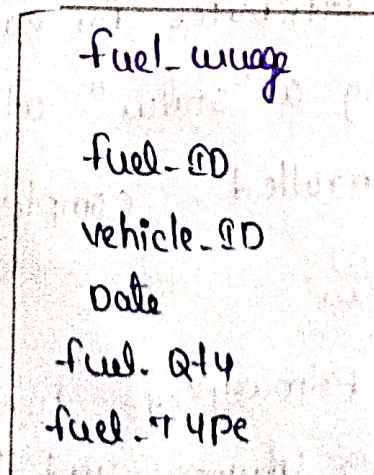 fuel_usage
fuel_ID
vehicle_ID
Date
fuel. Qty
fuel_Type